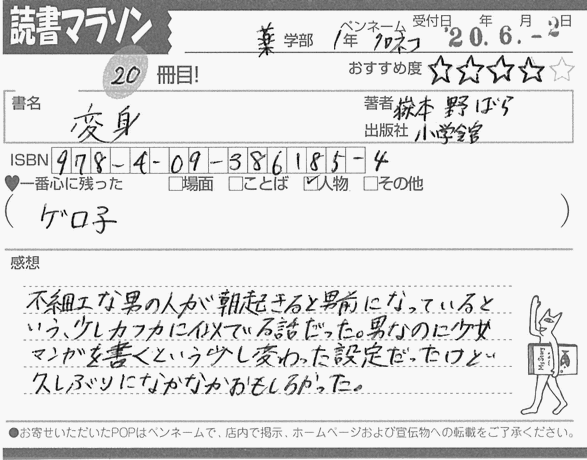 読書マラソン
薬 学部 1年 ペンネーム クロネコ 受付日 '20.年6.月-2日
20 冊目! おすすめ度 ☆☆☆☆☆
書名 変身
著者 嶽本 野ばら
出版社 小学館
ISBN 978-4-09-386185-4
♥一番心に残った □場面 □ことば ☑人物 □その他
( ゲロ子 )
感想
不細工な男の人が朝起きると男前になっていると
いう、少しカフカに似ている話だった。男なのに少女
マンガを書くという少し変わった設定だったけど
久しぶりになかなかおもしろかった。
●お寄せいただいたPOPはペンネームで、店内で掲示、ホームページおよび宣伝物への転載をご了承ください。